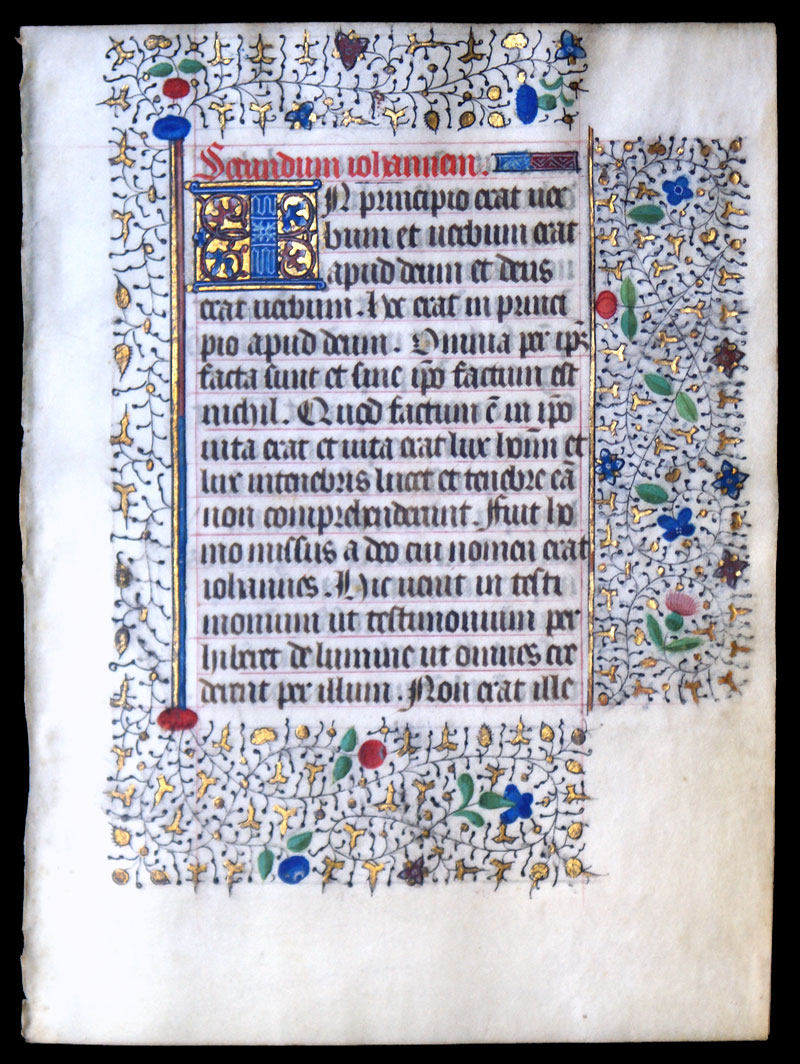 Secundum iohannem.
IN principio erat uer
bum et uerbum erat
apud deum et deus
erat uerbum. Hec erat in princi
pio apud deum. Omnia per ip̄m
facta sunt et sine ip̄o factum est
nichil. Quod factum ē in ip̄o
uita erat et uita erat lux hom̄ et
lux intenebris lucet et tenebre eā
non comprehenderunt. Fuit ho
mo missus a deo cui nomen erat
iohannes. Hic uenit in testi
monium ut testimonium per
hiberet de lumine ut omnes cre
derent per illum. Non erat ille